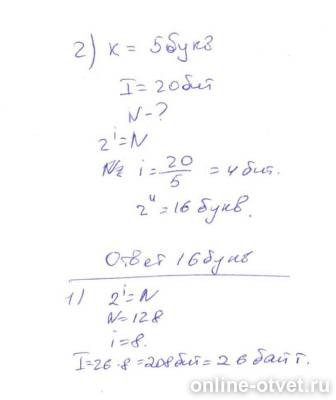 2) К = 5 букв
I = 20 бит
N - ?
2^i = N
i = 20/5 = 4 бит.
2^4 = 16 букв.
Ответ 16 букв
1) 2^i = N
N = 128
i = 8.
I = 26 · 8 = 208 бит = 26 байт.
online-otvet.ru